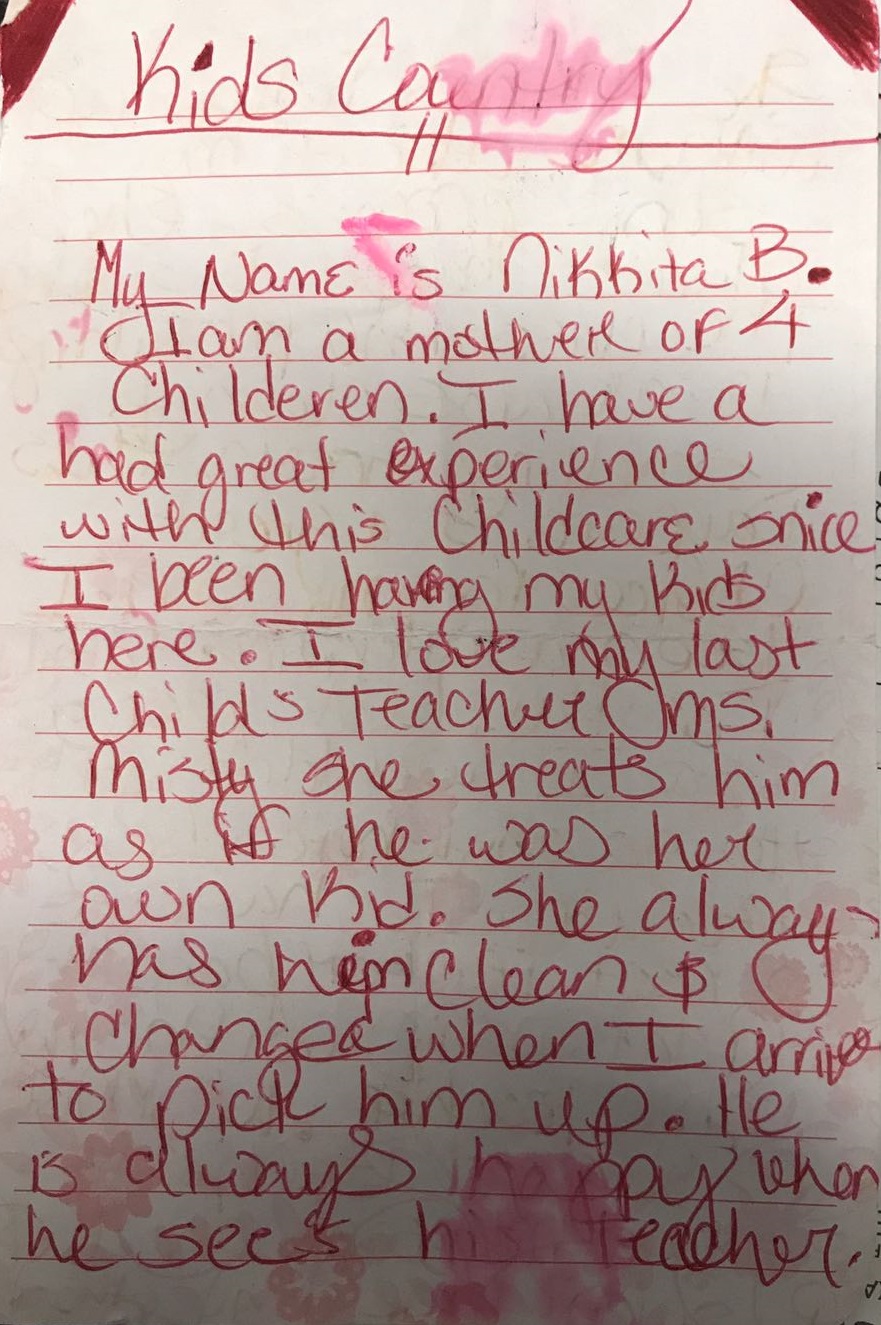 Kids Country
My Name is Nikkita B.
I am a mother of 4
Childeren. I have a
had great experience
with this Childcare snice
I been having my Kids
here. I love my last
Childs Teacher ms.
Misty she treats him
as if he was her
own Kid. She always
has him clean &
Changed when I arrive
to pick him up. He
is always happy when
he sees his teacher.